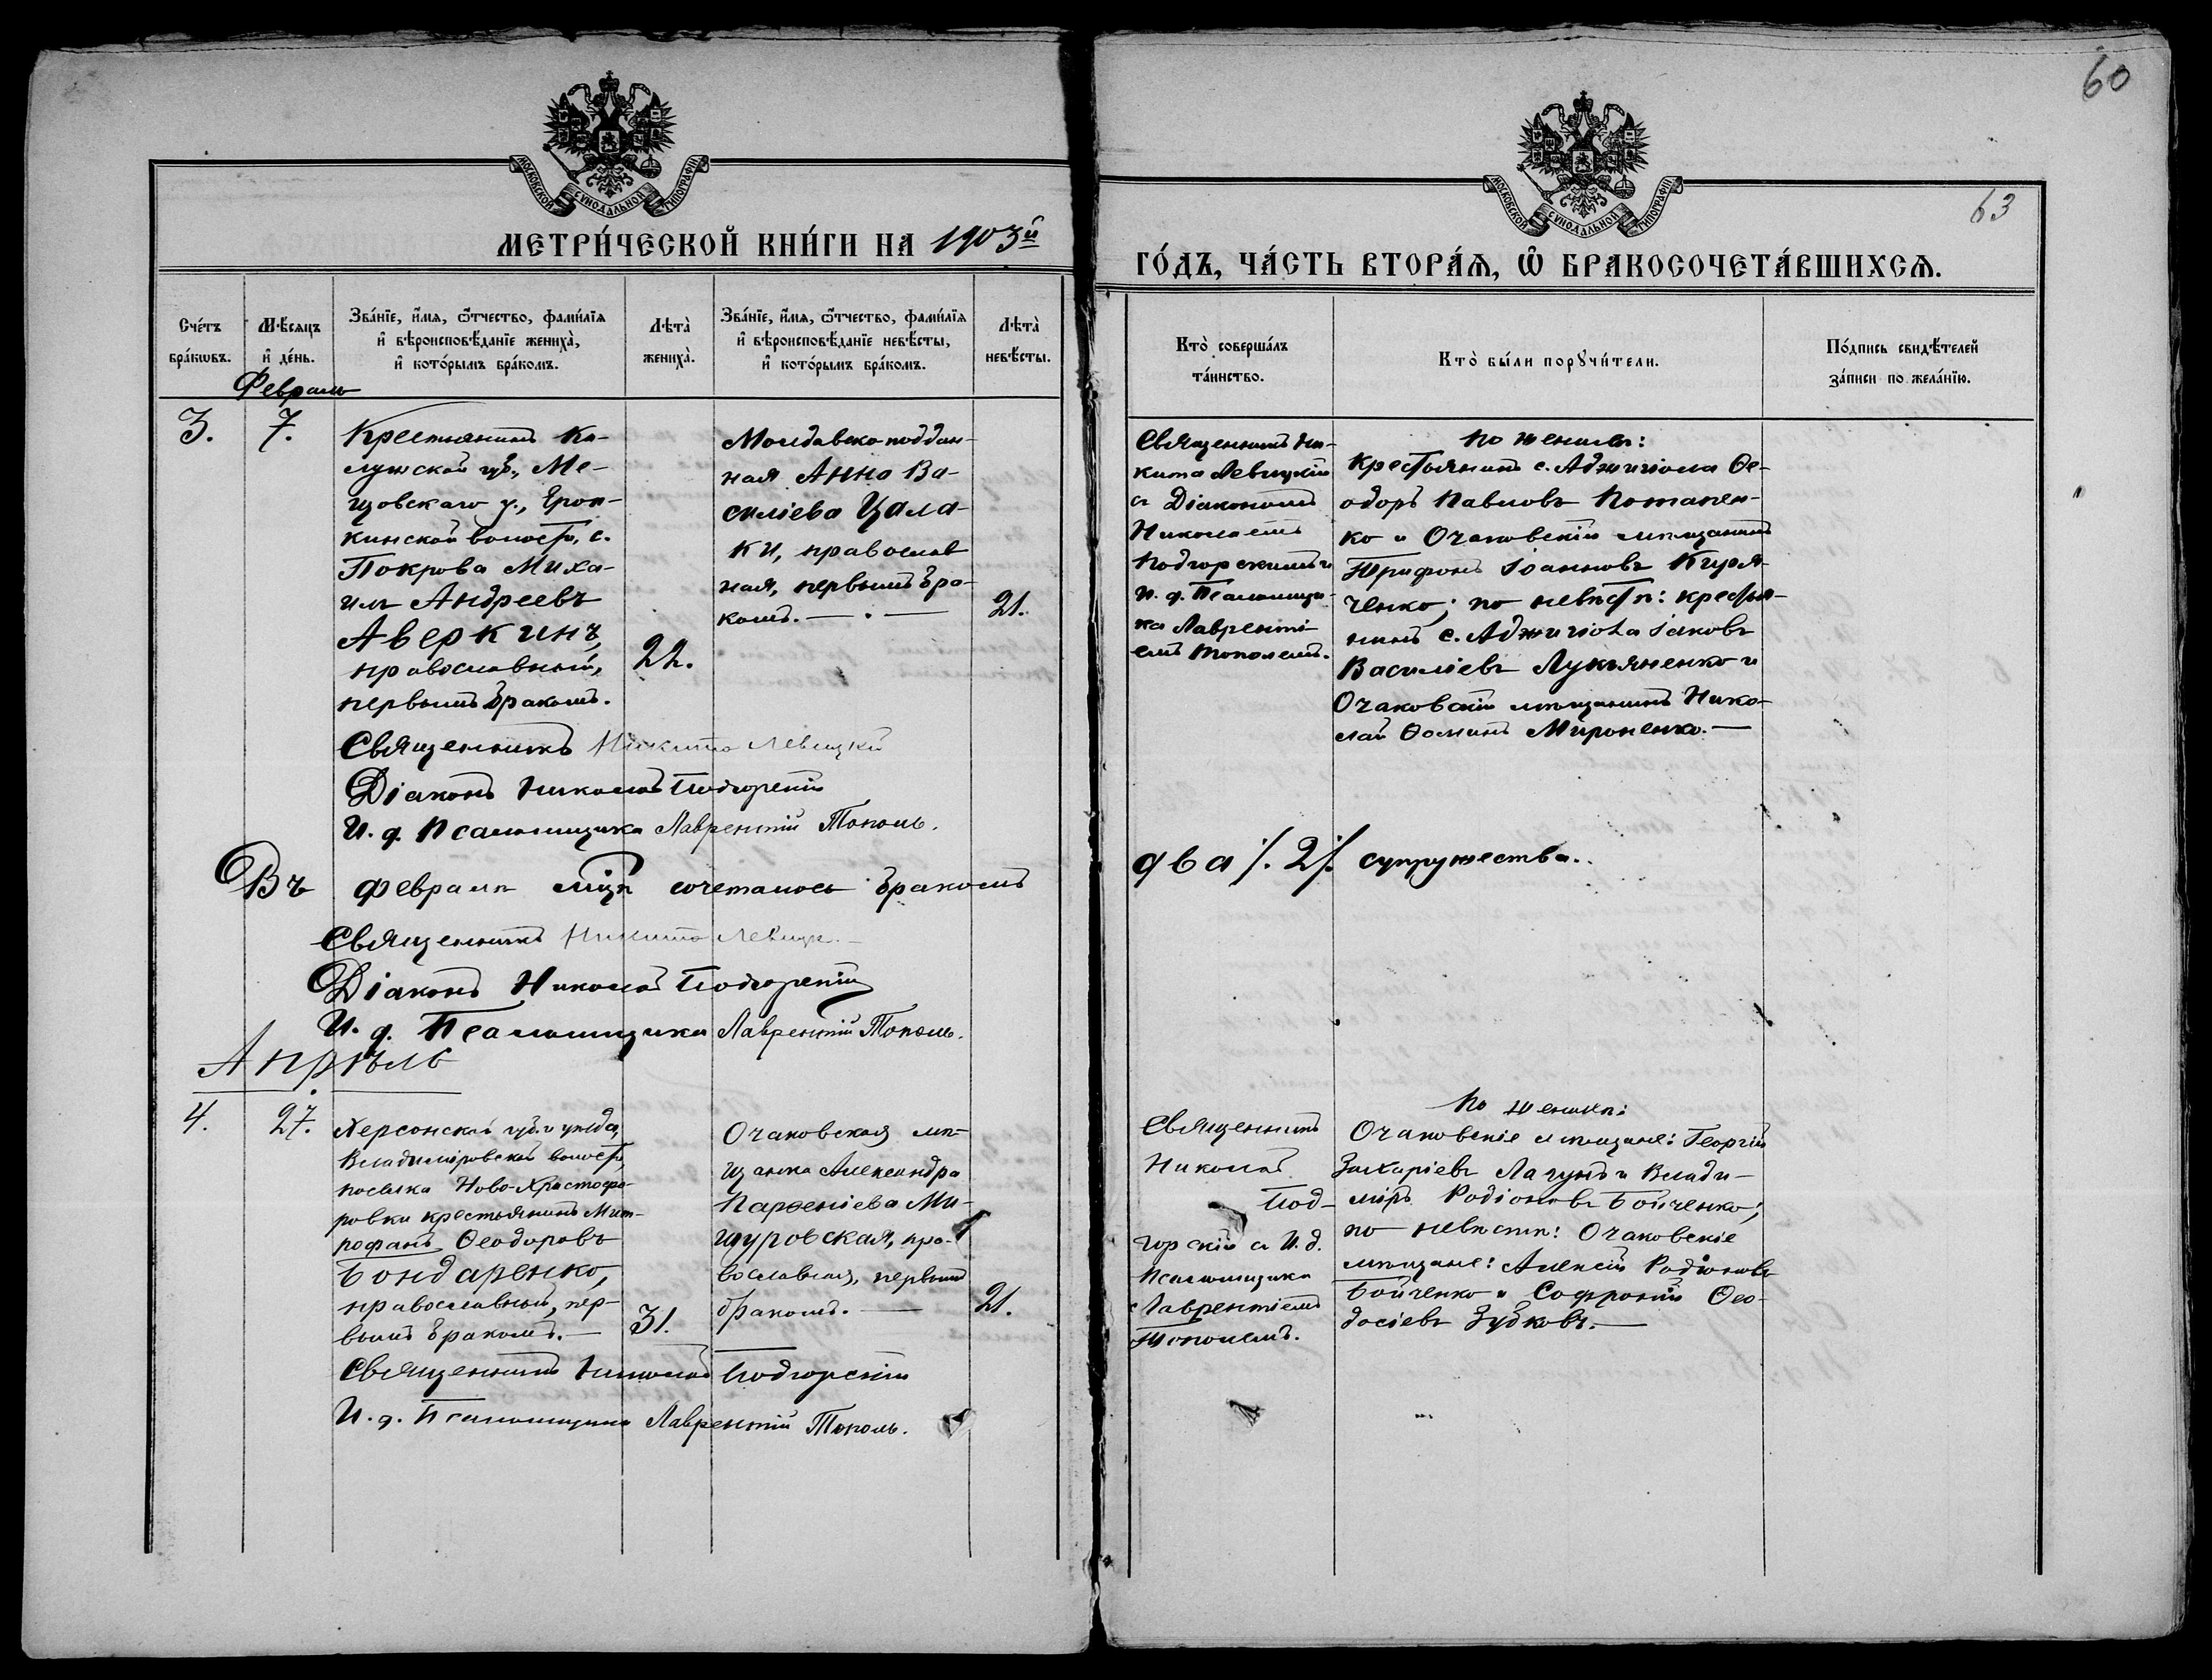 60
63
МОСКОВСКОЙ СѴНОДАЛЬНОЙ ТИПОГРАФІИ
МЕТРИ́ЧЕСКОЙ КНИ́ГИ НА 1903й
МОСКОВСКОЙ СѴНОДАЛЬНОЙ ТИПОГРАФІИ
ГО́ДЪ, ЧА́СТЬ ВТОРА́Ѧ, Ѡ҆ БРАКОСОЧЕТА́ВШИХСѦ.
Сче́тъ
бра́кѡвъ.
Мѣ́сяцъ
и҆ де́нь.
Зва́нїе, и҆́мѧ, ѻ҆́тчество, фами́лїѧ
и҆ вѣроисповѣ́данїе жениха̀,
и҆ кото́рымъ бра́комъ.
Лѣта̀
жениха̀.
Зва́нїе, и҆́мѧ, ѻ҆́тчество, фами́лїѧ
и҆ вѣроисповѣ́данїе невѣ́сты,
и҆ кото́рымъ бра́комъ.
Лѣта̀
невѣ́сты.
Кто̀ соверша́лъ
та́инство.
Кто̀ бы́ли порꙋчи́тели.
По́дпись свидѣ́телей
за́писи по жела́нїю.
Февраль
3.
7.
Крестьянинъ Ка-
лужской губ., Ме-
щовскаго у., Ероп-
кинской волости, с.
Покрова Миха-
илъ Андреевъ
Аверкинъ,
православный,
первымъ бракомъ.
22.
Молдавско поддан-
ная Анна Ва-
силіева Цала-
ки, православ
ная, первымъ бра-
комъ.
21.
Священникъ Ни-
кита Левицкій
съ Діакономъ
Николаемъ
Подгорскимъ и
И. д. Псаломщи-
ка Лавренті-
емъ Тополемъ.
По женихѣ:
Крестьянинъ с. Аджигіола Ѳе-
одоръ Павловъ Потапен-
ко и Очаковскій мѣщанинъ
Трифонъ Іоанновъ Куря-
ченко; по невѣстѣ: крестья-
нинъ с. Аджигіола Іаковъ
Василіевъ Лукьяненко и
Очаковскій мѣщанинъ Нико-
лай Ѳоминъ Мироненко.
Священникъ Никита Левицкій
Діаконъ Николай Подгорскій
И. д. Псаломщика Лаврентій Тополь.
Въ февралѣ м͠цѣ сочеталось бракомъ
два /. 2 /. супружества.
Священникъ Никита Левицк.
Діаконъ Николай Подгорскій
И. д. Псаломщика Лаврентій Тополь.
Апрѣль
4.
27.
Херсонской губ. и уѣзда,
Владиміровской волости,
поселка Ново-Христофо-
ровки крестьянинъ Мит-
рофанъ Ѳеодоровъ
Бондаренко,
православный, пер-
вымъ бракомъ.
31.
Очаковская мѣ-
щанка Александра
Парѳеніева Ми-
шуровская, пра-
вославная, первымъ
бракомъ.
21.
Священникъ
Николай
Под-
горскій съ И. д.
Псаломщика
Лаврентіемъ
Тополемъ.
По женихѣ:
Очаковскіе мѣщане: Георгій
Захаріевъ Лагунъ и Влади-
міръ Родіоновъ Бойченко;
по невѣстѣ: Очаковскіе
мѣщане: Алексій Родіоновъ
Бойченко и Софроній Ѳео-
досіевъ Зубковъ.
Священникъ Николай Подгорскій
И. д. Псаломщика Лаврентій Тополь.